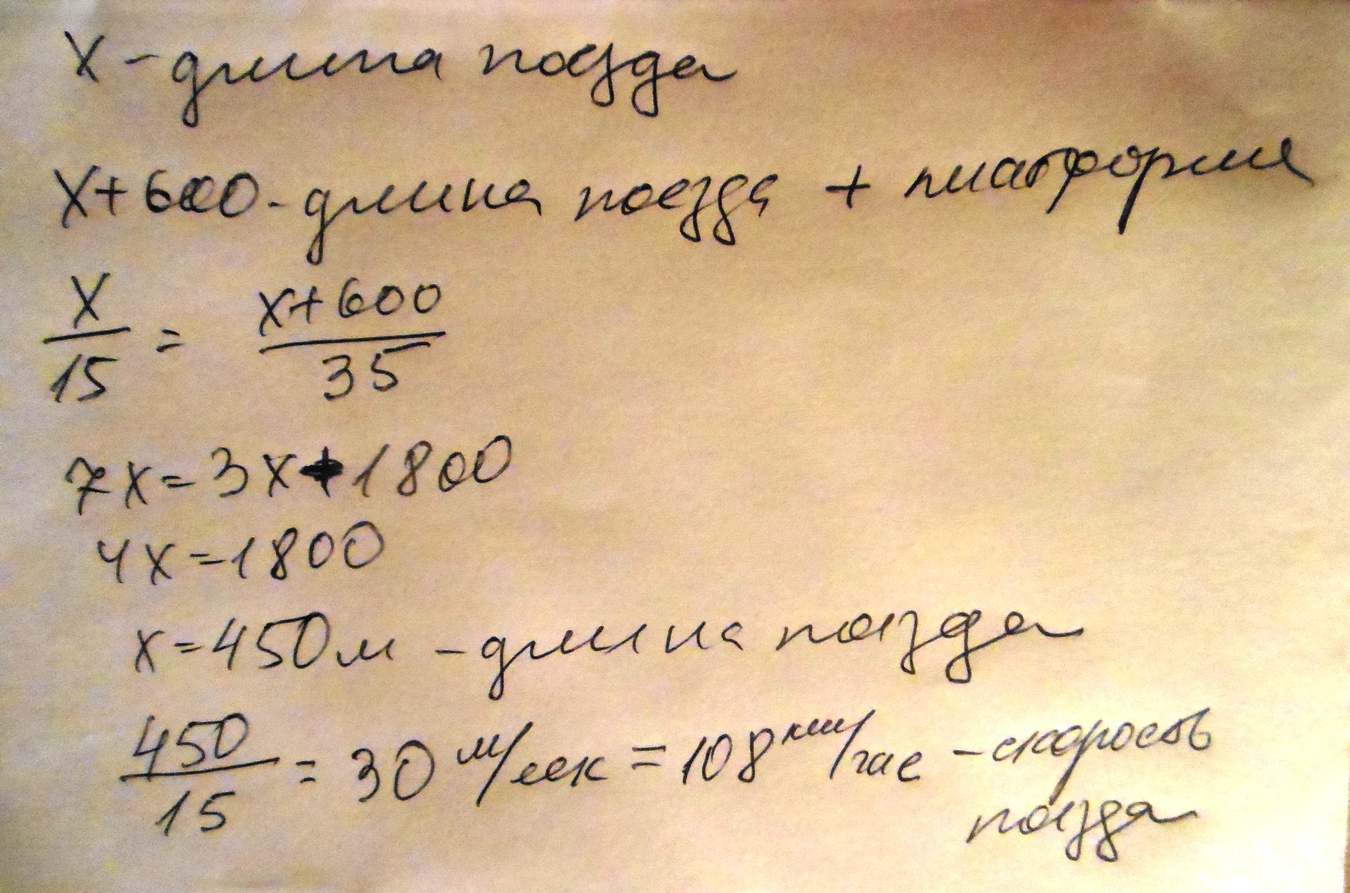 x - длина поезда
x+600 - длина поезда + платформы
x/15 = x+600/35
7x = 3x + 1800
4x = 1800
x = 450 м - длина поезда
450/15 = 30 м/сек = 108 км/час - скорость
поезда